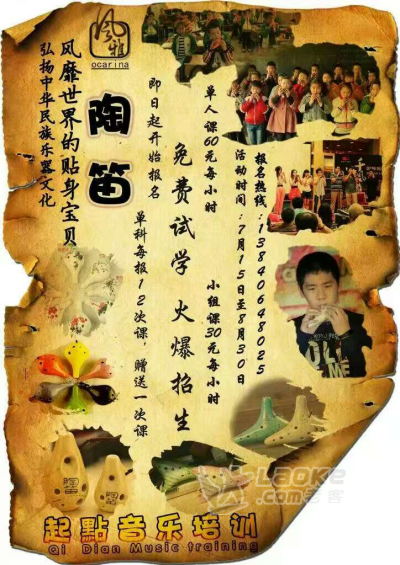 风雅
ocarina
风靡世界的贴身宝贝
弘扬中华民族乐器文化
陶笛
即日起开始报名
单科每报12次课,赠送一次课
免费试学 火爆招生
单人课60元每小时
小组课30元每小时
活动时间:7月15日至8月30日
报名热线:13840648025
陶笛
陶笛
LAOKE
.com老客
起點音乐培训
Qi Dian Music training